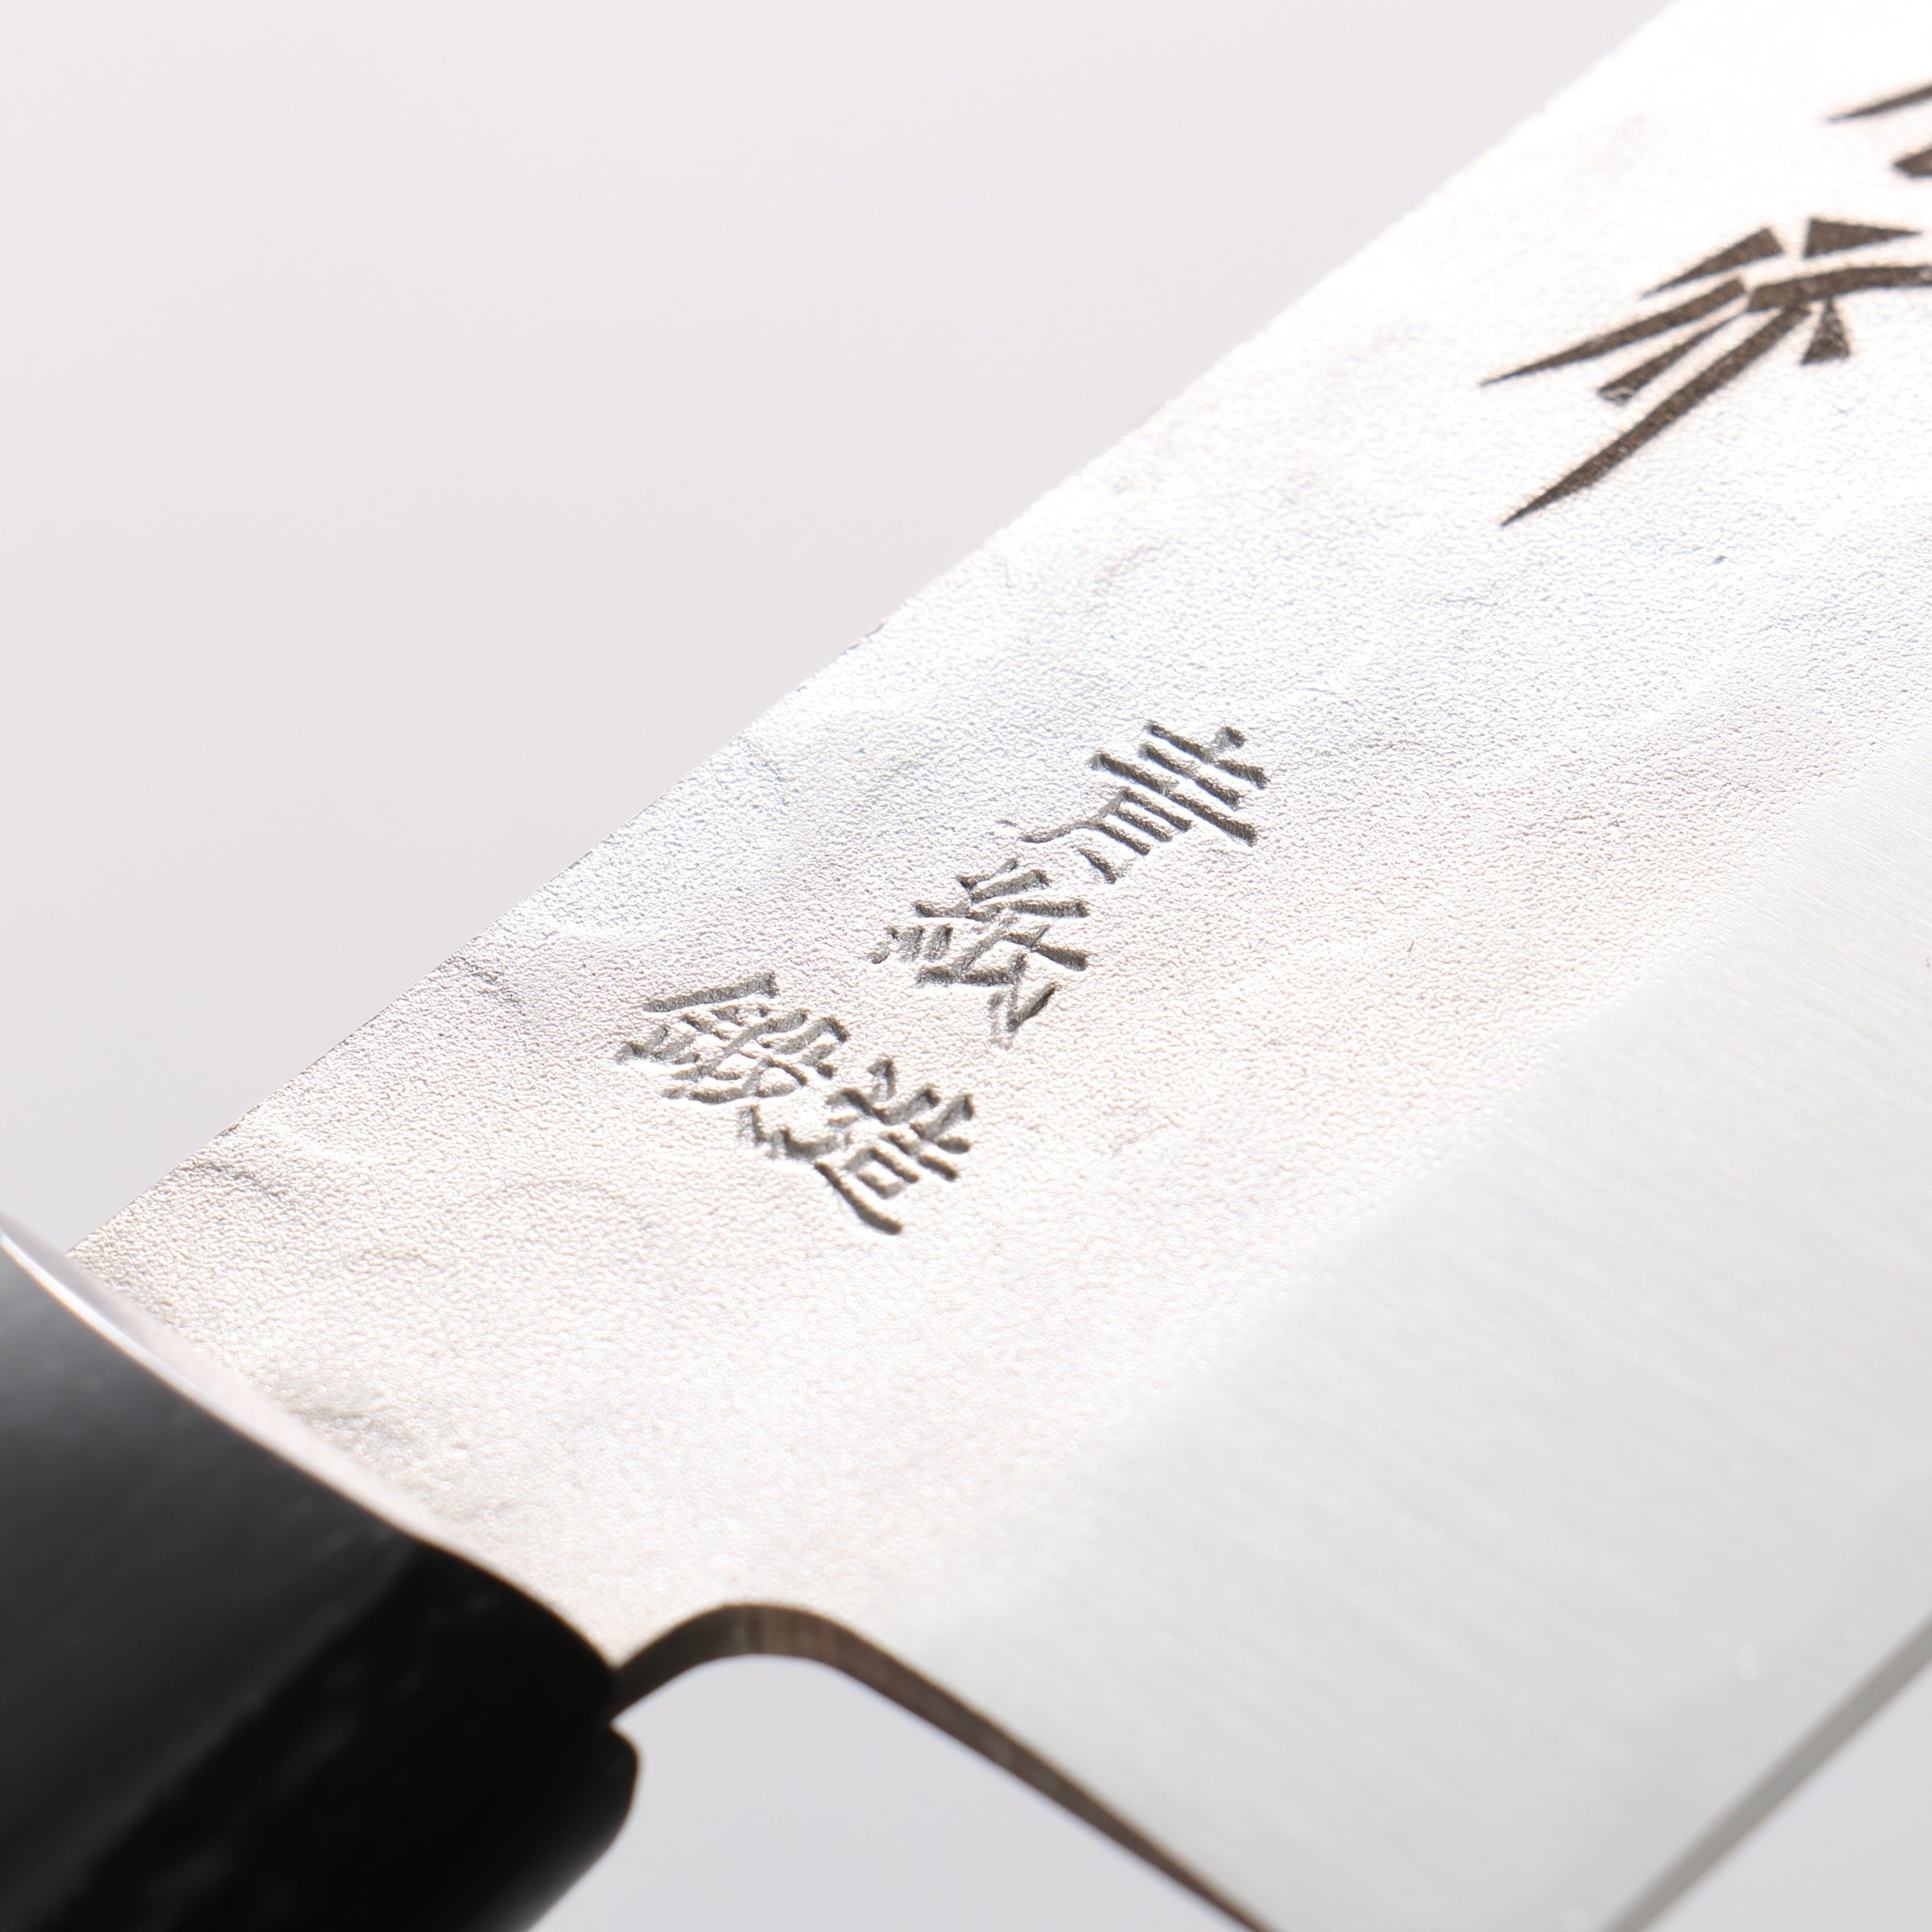 青紙
鍛造